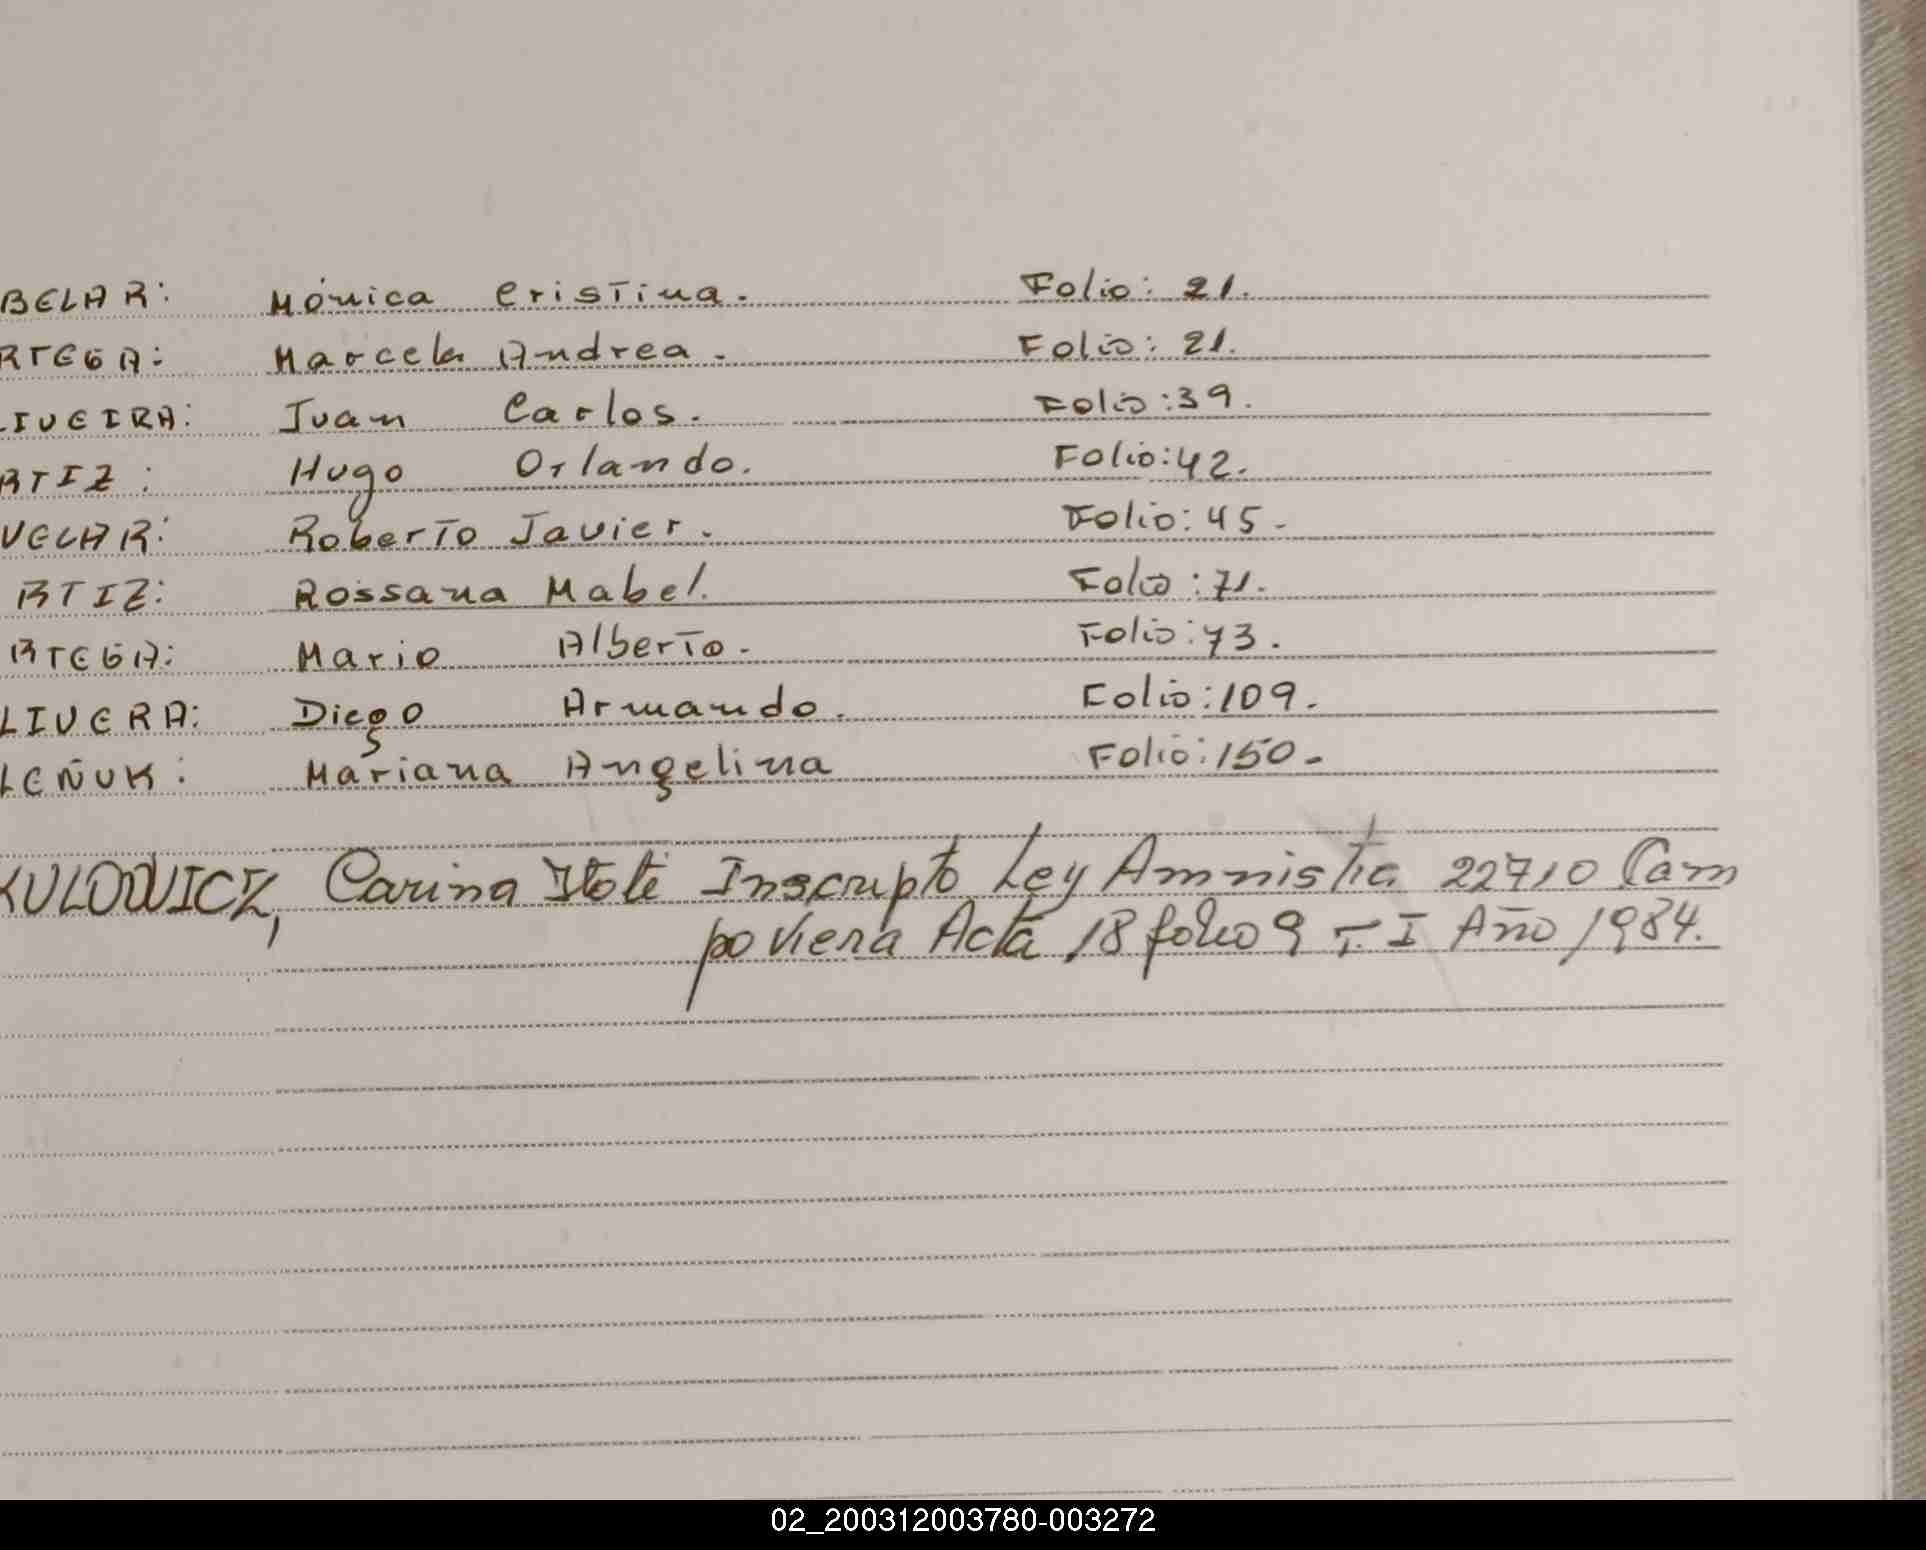 BELAR: Mónica Cristina. Folio: 21.
RTEGA: Marcela Andrea. Folio: 21.
LIVEIRA: Juan Carlos. Folio: 39.
RTIZ: Hugo Orlando. Folio: 42.
VELAR: Roberto Javier. Folio: 45.
RTIZ: Rossana Mabel. Folio: 71.
RTEGA: Mario Alberto. Folio: 73.
LIVERA: Diego Armando. Folio: 109.
LEÑUK: Mariana Angelina Folio: 150.
KULOWICZ, Carina Itatí Inscripto Ley Amnistia 22710 Cam
po Viera Acta 18 folio 9 T. I Año 1984.
02_200312003780-003272